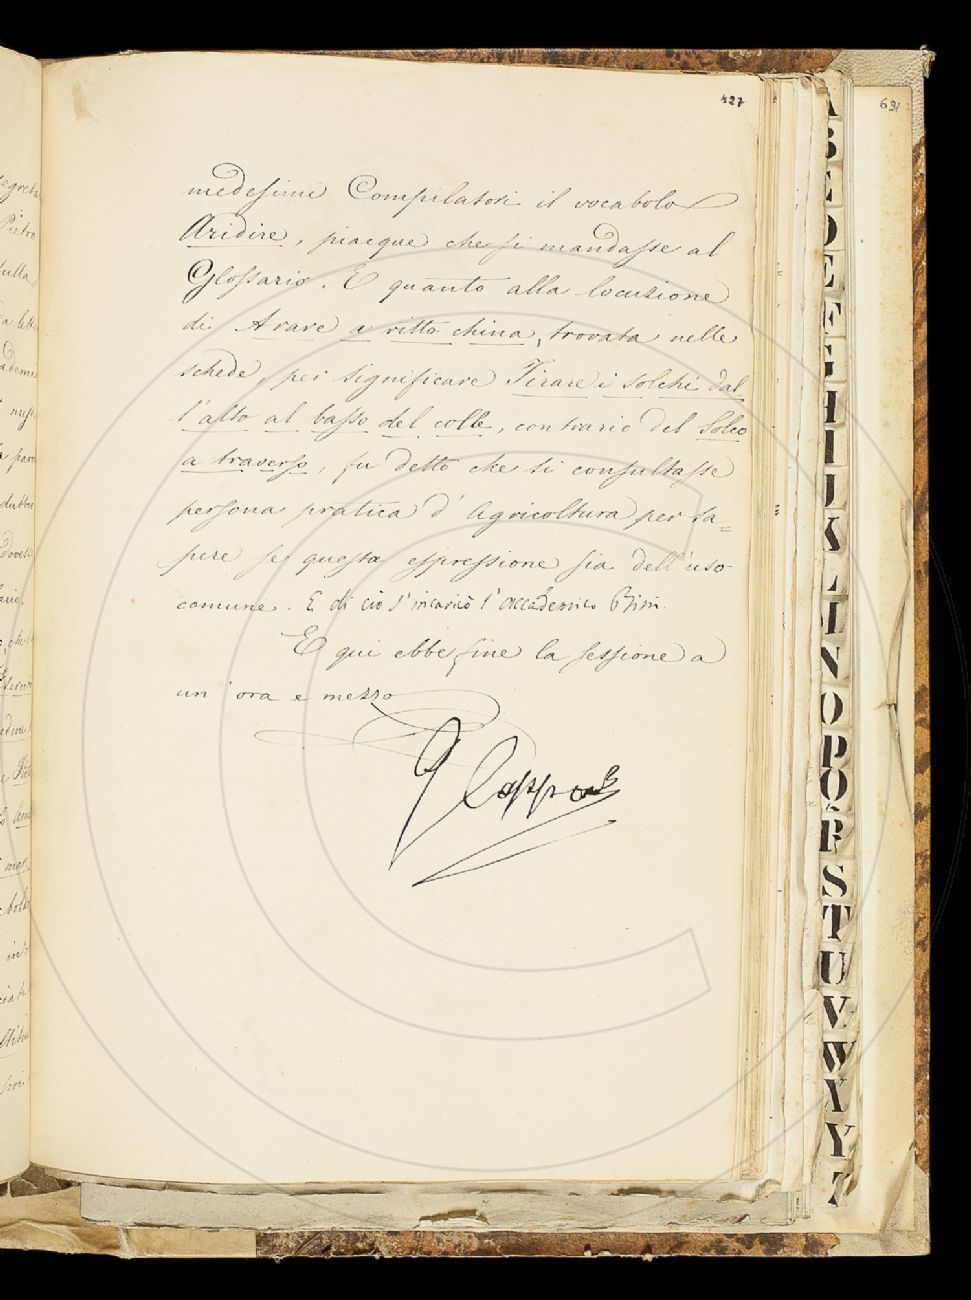 427
medesimi Compilatori il vocabolo
Aridire, piacque che si mandasse al
Glossario. E quanto alla locuzione
di Arare a ritto china, trovata nelle
schede, per significare Tirare i solchi dal-
l'alto al basso del colle, contrario del Solco
a traverso, fu detto che si consultasse
persona pratica d'Agricoltura per sa=
pere se questa espressione sia dell'uso
comune. E di ciò s'incaricò l'accademico Bini.
E qui ebbe fine la sessione a
un'ora e mezzo
G Capponi
egreta
Pietro
sulla
631
A
B
C
D
E
F
G
H
I
J
K
L
M
N
O
P
Q
R
S
T
U
V
W
X
Y
Z